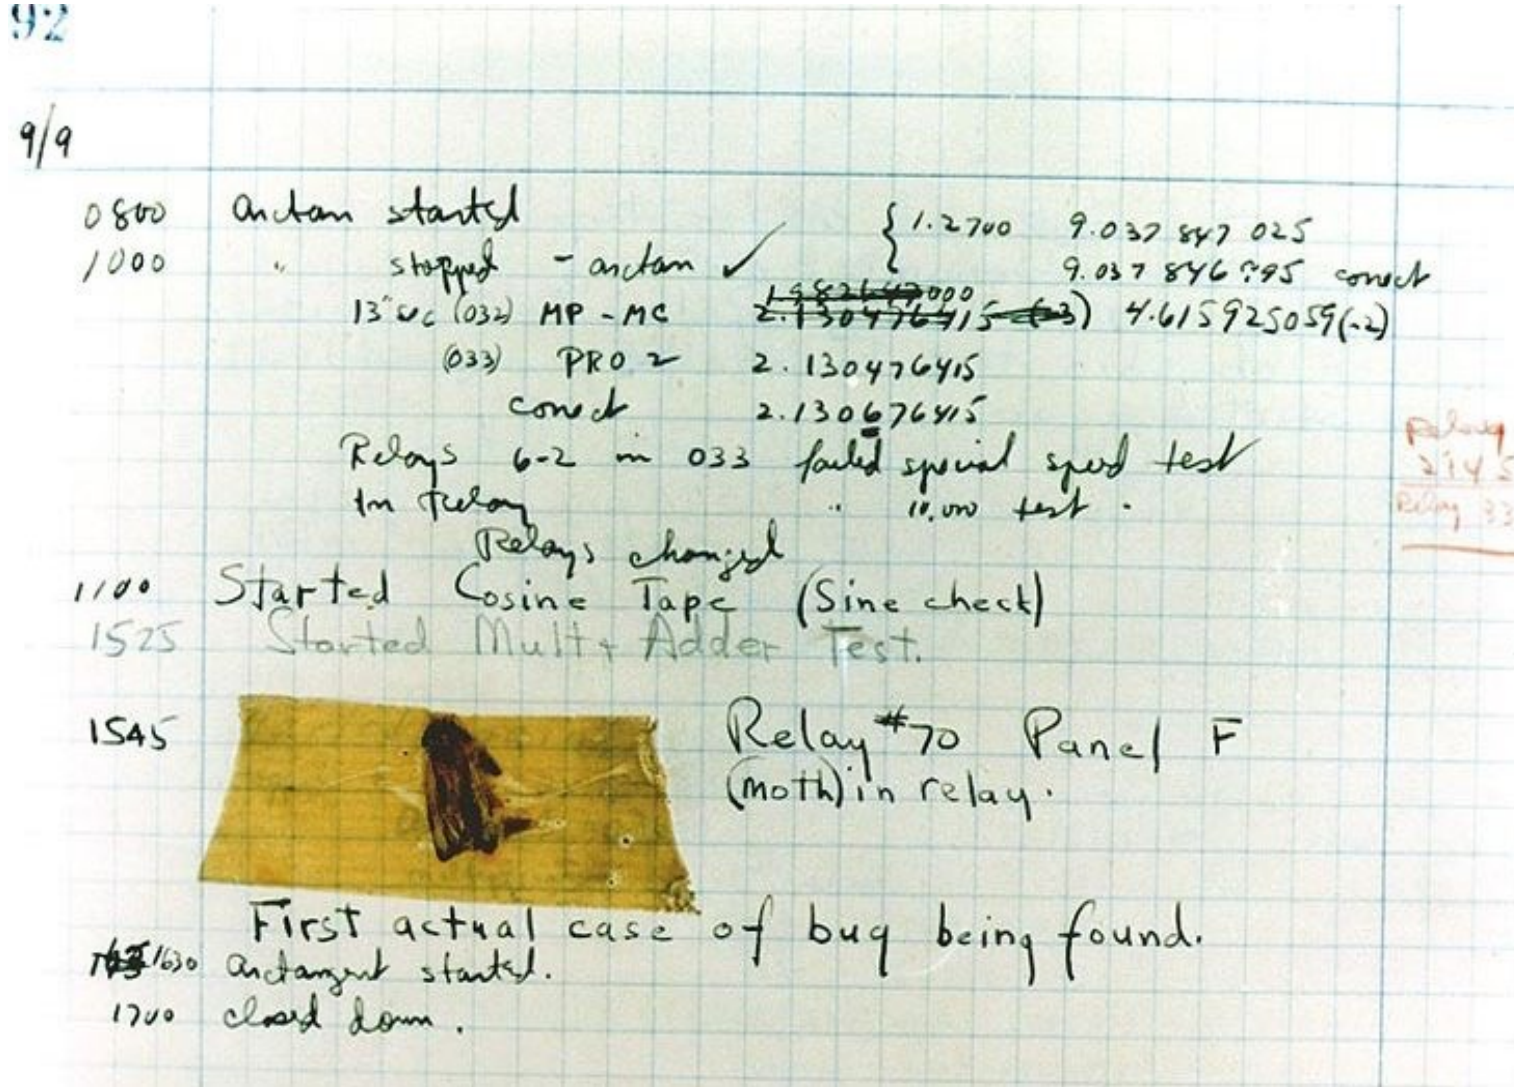 92
9/9
0800 Arctan started { 1.2700 9.037 847 025
1000 " stopped - arctan ✓ 9.037 846 995 correct
13"uc (032) MP - MC 1.982647000 2.130476415 (-3) 4.615925059(-2)
(033) PRO 2 2.130476415
correct 2.130676415
Relays 6-2 in 033 failed special speed test
In Relay " 10,000 test.
Relays changed
Relay
2145
Relay 33
1100 Started Cosine Tape (Sine check)
1525 Started Mult + Adder Test.
1545 Relay #70 Panel F
(moth) in relay.
First actual case of bug being found.
1630 Arctangent started.
1700 closed down.